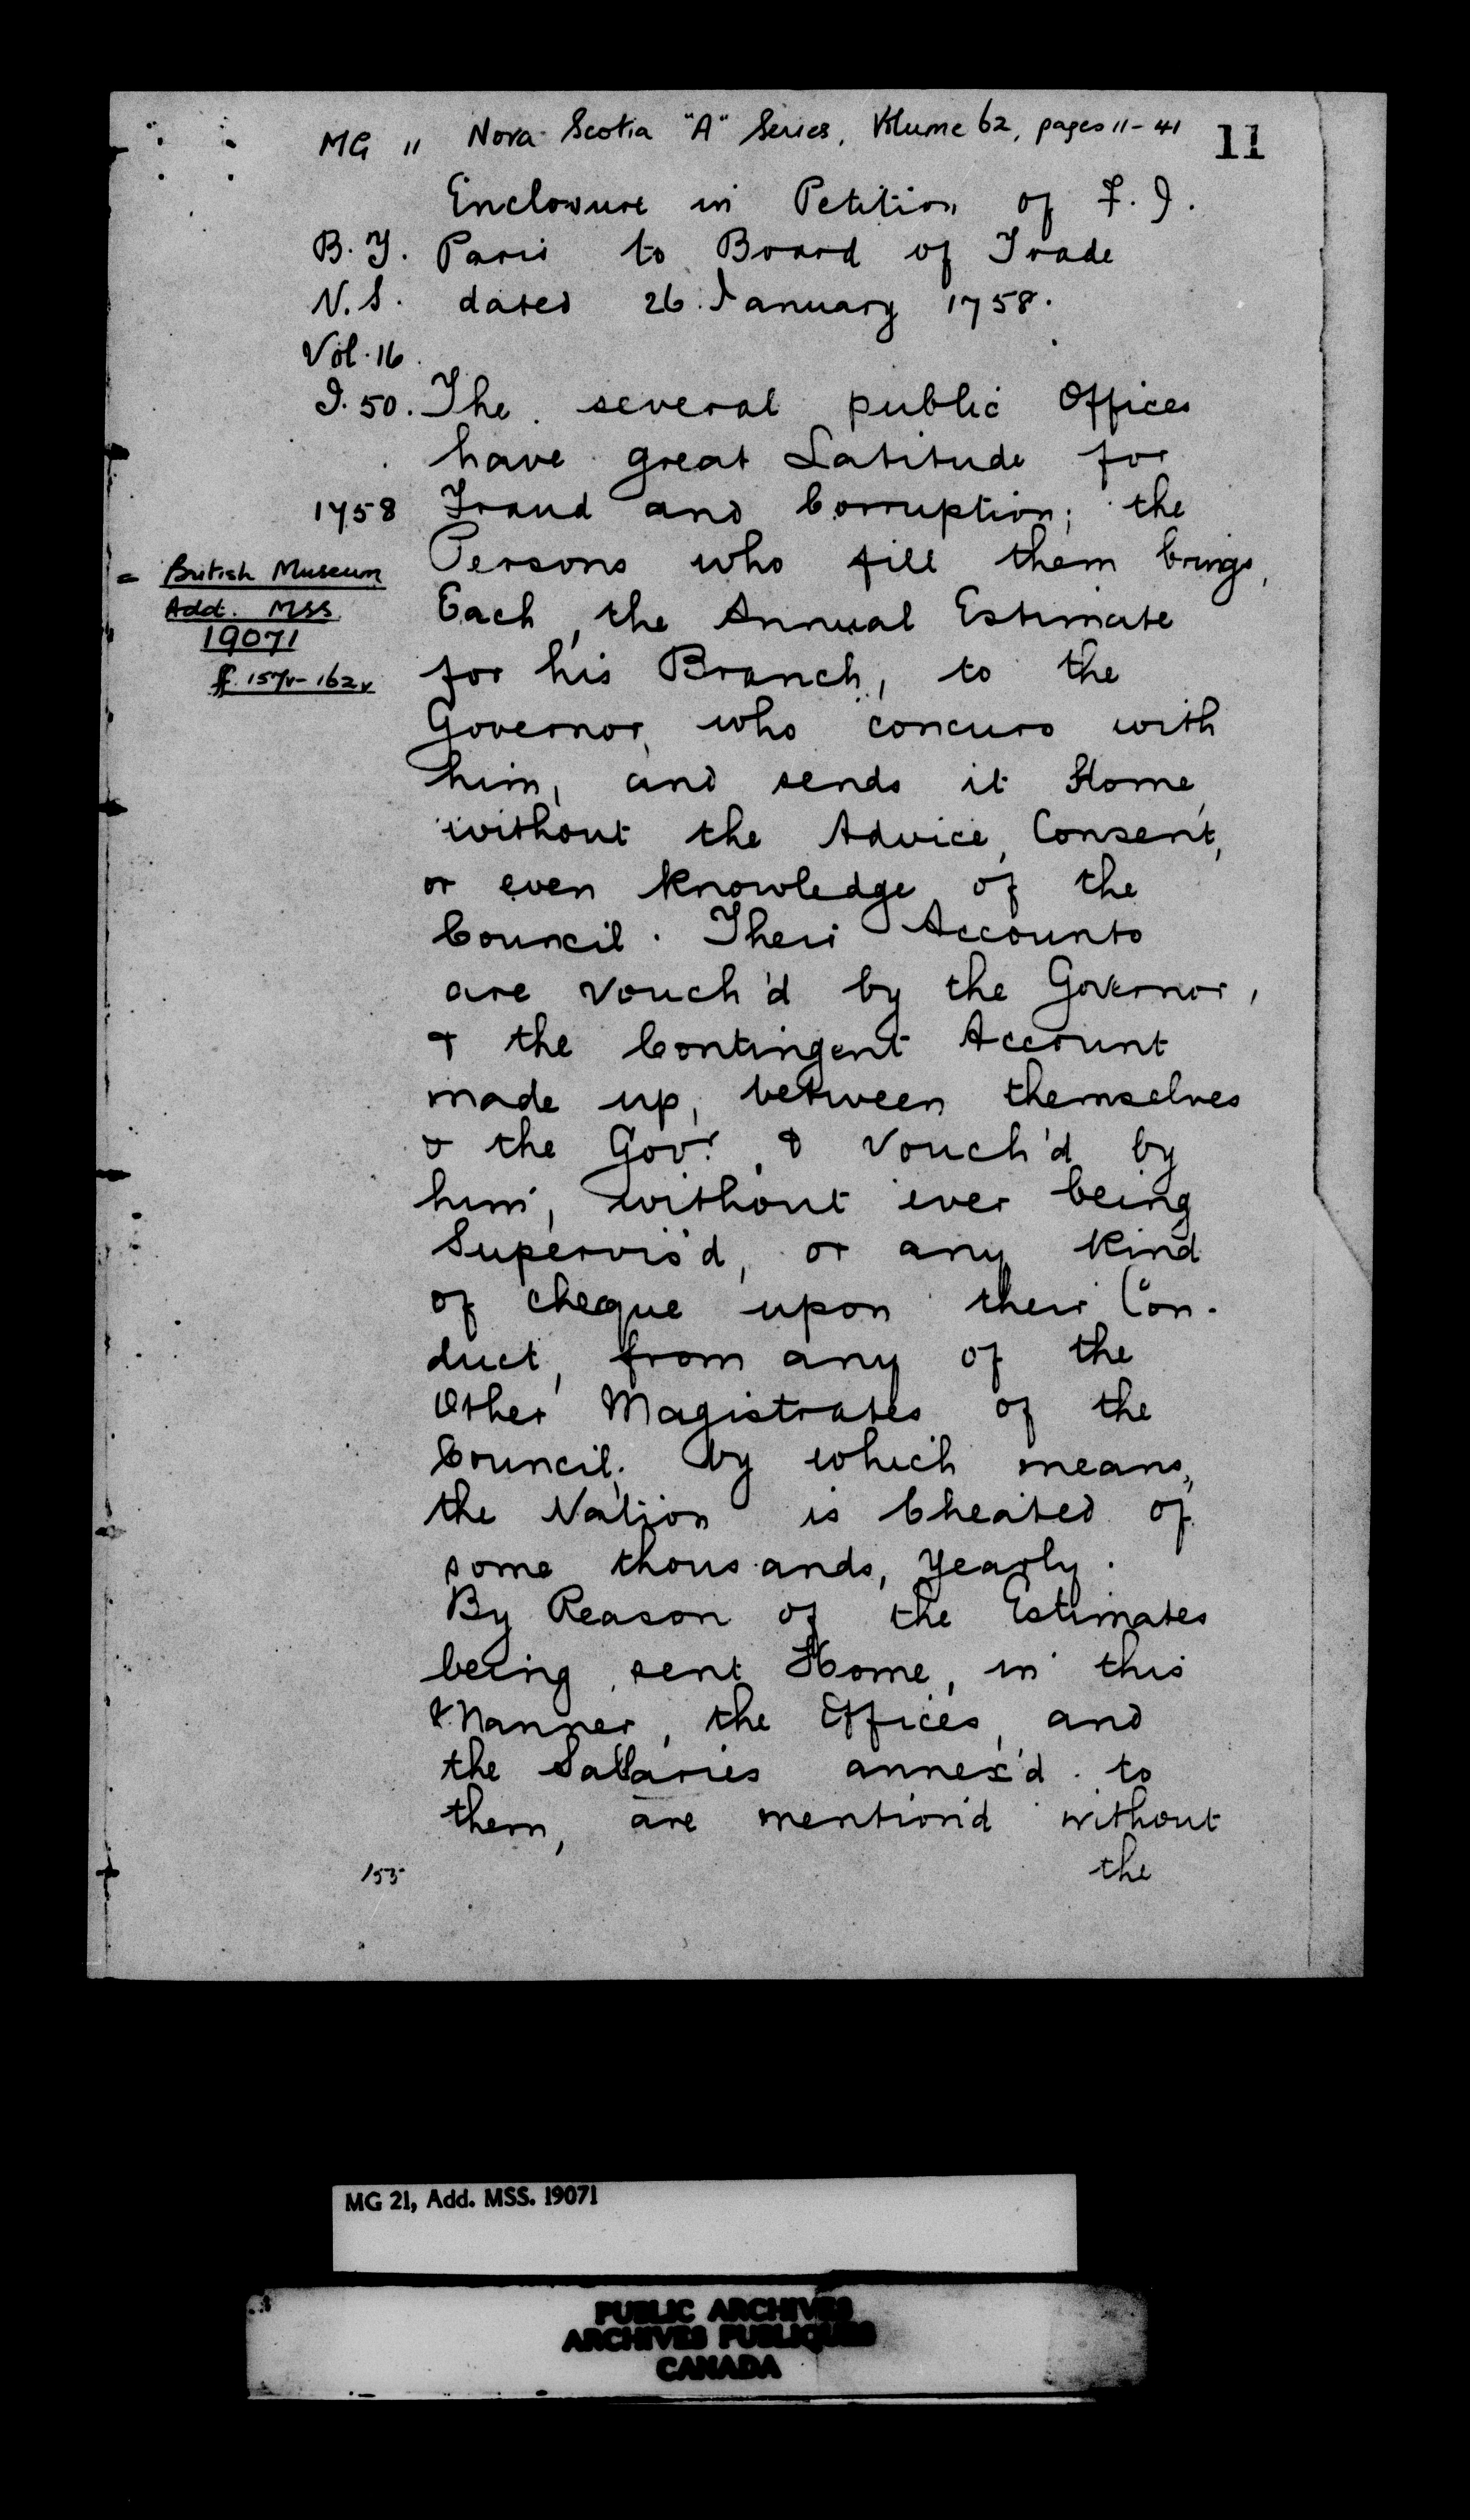 MG 11 Nova Scotia "A" Series, Volume 62, pages 11-41 11
Enclosure in Petition of F. J.
B. T. Paris to Board of Trade
N. S. dated 26 January 1758.
Vol. 16
J. 50. The several public Offices
have great Latitude for
1758 Fraud and Corruption; the
Persons who fill them brings,
= British Museum
Add. MSS
19071
ff. 157v-162v
Each, the Annual Estimate
for his Branch, to the
Governor, who concurs with
him, and sends it Home,
without the Advice, Consent,
or even knowledge of the
Council. Their Accounts
are vouch'd by the Governor,
& the Contingent Account
made up, between themselves
& the Govr. & vouch'd by
him, without ever being
Supervis'd, or any kind
of cheque upon their Con-
duct, from any of the
Other Magistrates of the
Council; by which means,
the Nation is Cheated of
some thousands, yearly.
By Reason of the Estimates
being sent Home, in this
Manner, the Offices, and
the Sallaries annex'd to
them, are mention'd without
the
153
MG 21, Add. MSS. 19071
PUBLIC ARCHIVES
ARCHIVES PUBLIQUES
CANADA